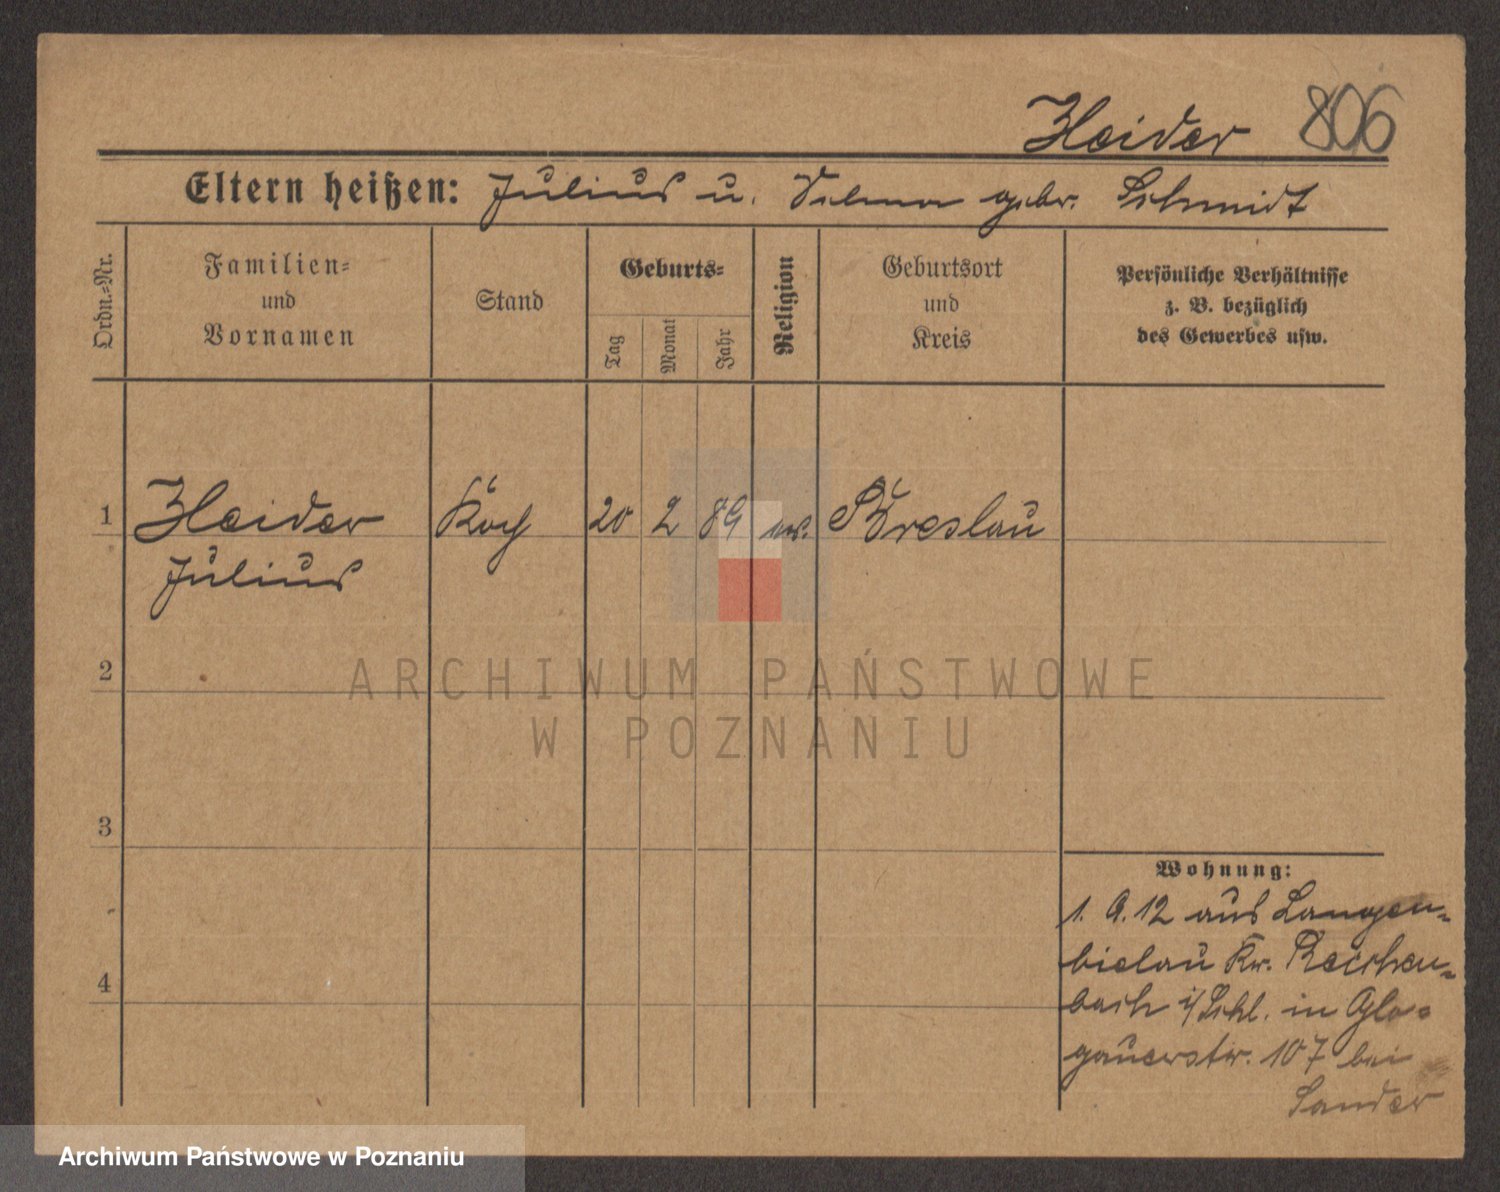 Heider 806
Eltern heißen: Julius u. Selma gebr. Schmidt
Ordn.-Nr.
Familien-
und
Vornamen
Stand
Geburts-
Tag
Monat
Jahr
Religion
Geburtsort
und
Kreis
Persönliche Verhältnisse
z. B. bezüglich
des Gewerbes usw.
1 Heider Koch 20 2 89 ev. Breslau
Julius
2
ARCHIWUM PAŃSTWOWE
W POZNANIU
3
Wohnung:
1. 9. 12 aus Langen-
bielau Kr. Reichen-
4
bach i/Schl. in Glo-
gauerstr. 107 bei
Sander
Archiwum Państwowe w Poznaniu